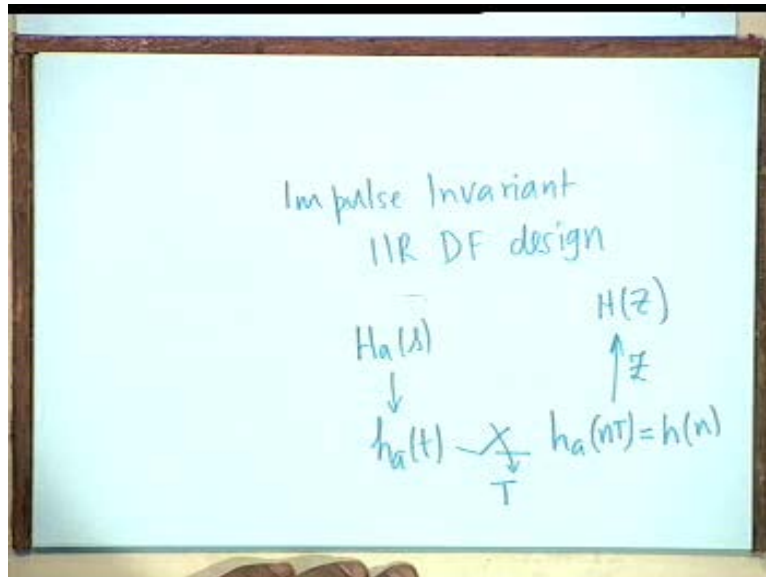 Impulse Invariant
IIR DF design
Ha(s) H(Z)
↓ ↑ Z
ha(t) ha(nT)=h(n)
T